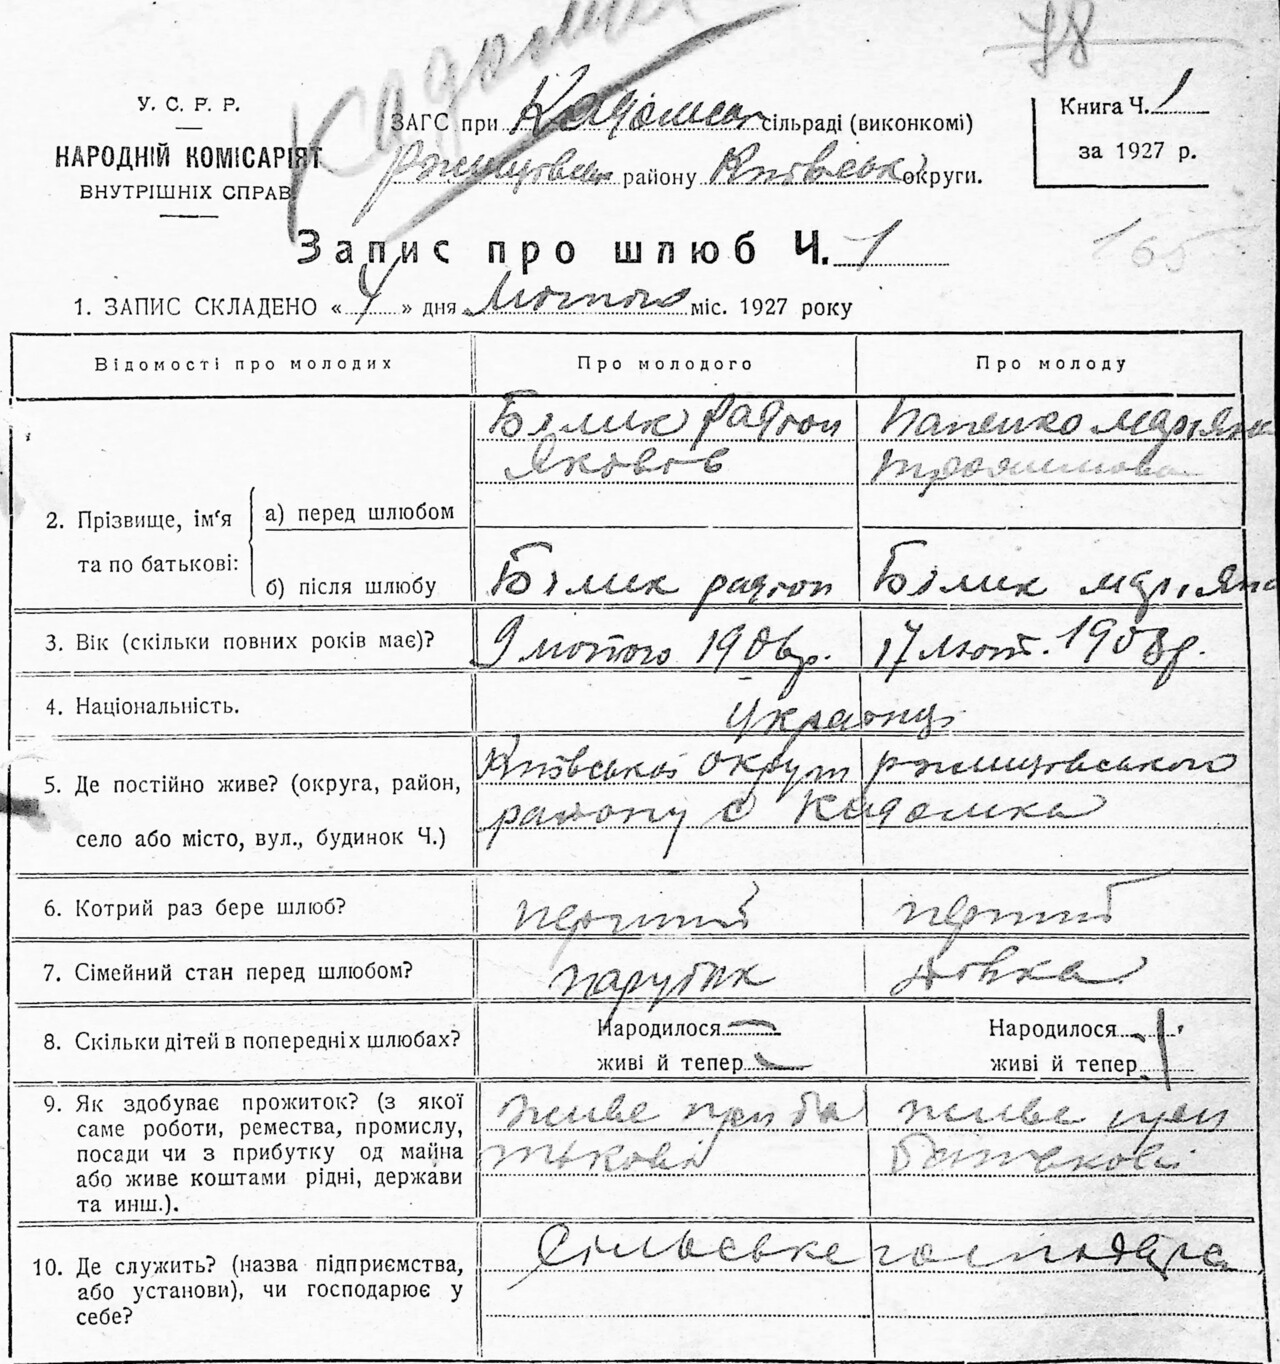 Кадомка
78
У. С. Р. Р.
НАРОДНІЙ КОМІСАРІЯТ
ВНУТРІШНІХ СПРАВ
ЗАГС при Кадомськ сільраді (виконкомі)
Ржищовськ району Київськ округи.
Книга Ч. 1
за 1927 р.
Запис про шлюб Ч. 1
165
1. ЗАПИС СКЛАДЕНО « 4 » дня Лютого міс. 1927 року
Відомості про молодих Про молодого Про молоду
2. Прізвище, ім‘я та по батькові:
а) перед шлюбом
Білик Радіон
Яковів
Папенко Мар'яна
б) після шлюбу
Білик Радіон
Білик Мар'яна
3. Вік (скільки повних років має)?
9 лютого 1906 р.
17 лют. 1908 р.
4. Національність.
Українці
5. Де постійно живе? (округа, район,
село або місто, вул., будинок Ч.)
Київської округи Ржищовського
району с Кадомка
6. Котрий раз бере шлюб?
перший
перший
7. Сімейний стан перед шлюбом?
парубок
дівка
8. Скільки дітей в попередніх шлюбах?
Народилося —
живі й тепер —
Народилося
живі й тепер
9. Як здобуває прожиток? (з якої
саме роботи, ремества, промислу,
посади чи з прибутку од майна
або живе коштами рідні, держави
та инш.).
живе при ба
тькові
живе при
батькові
10. Де служить? (назва підприємства,
або установи), чи господарює у
себе?
Сільське господарс